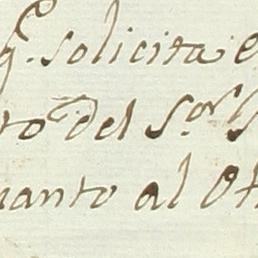 q. solicita
to del S.or
uanto al Ot